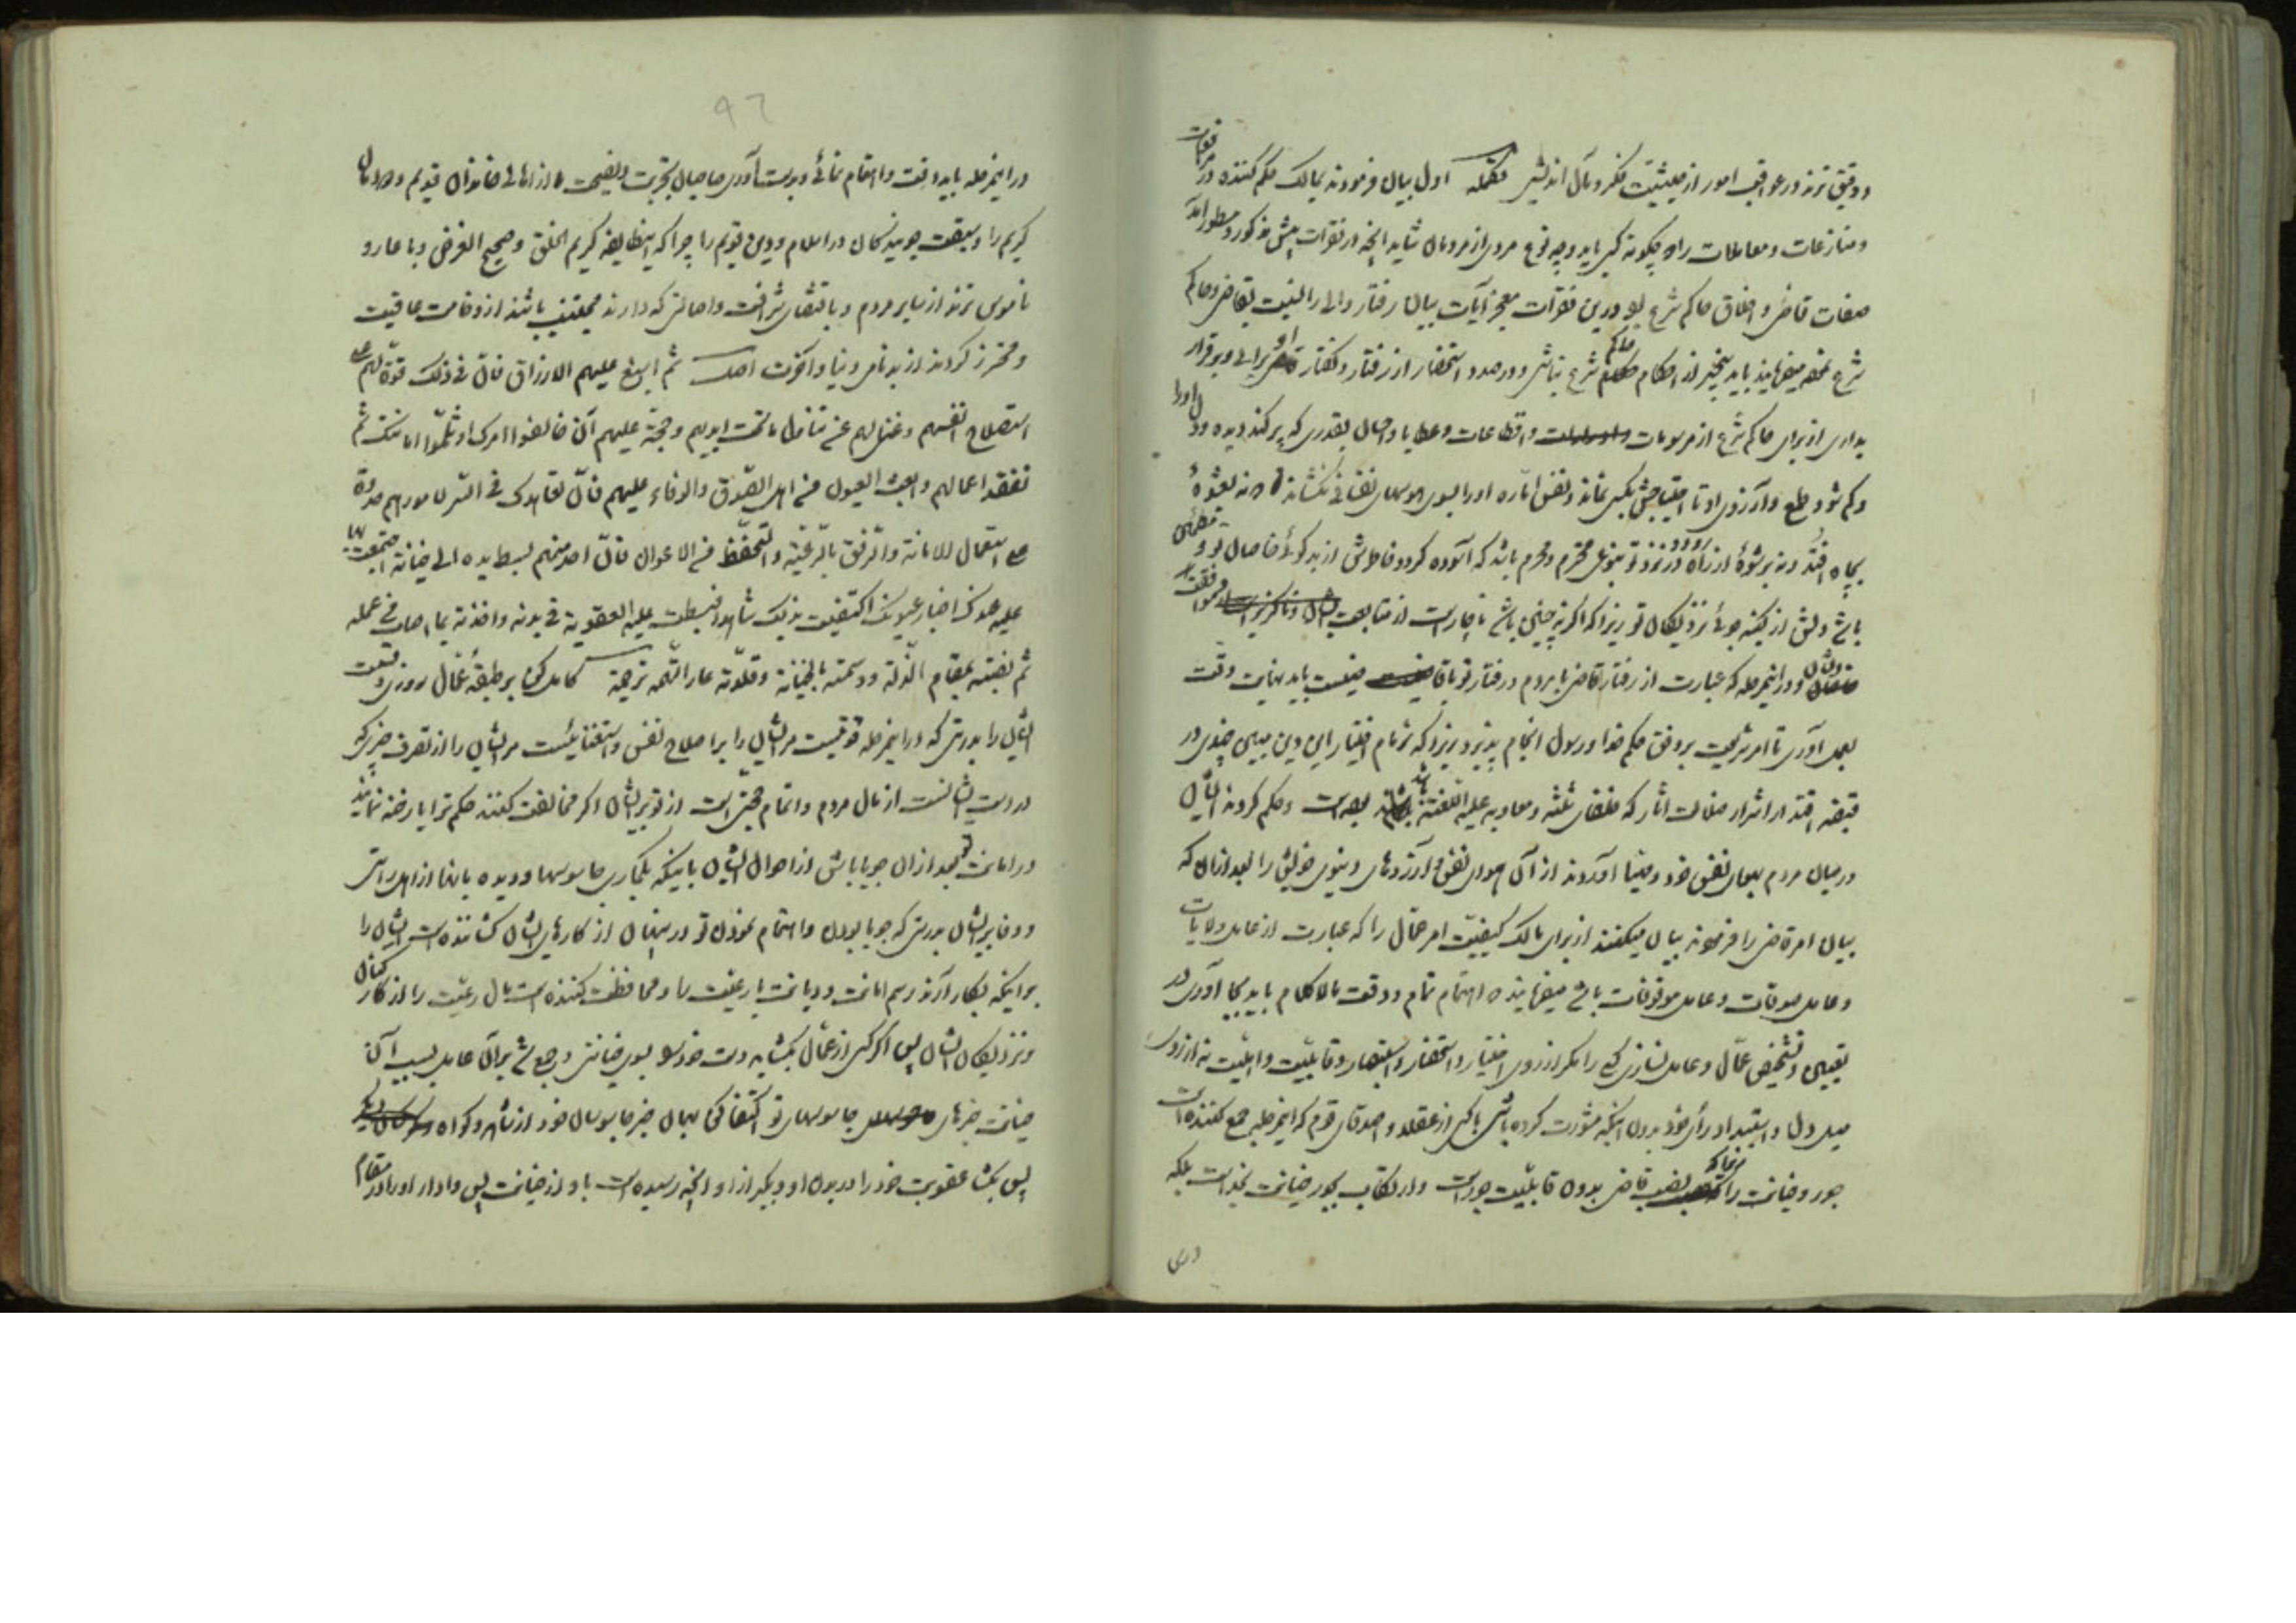 ودقیق ترند در عواقب امور از حیثیت فکر و مآل اندیشی تکمله اول بیان فرمودند بمالک حکم کننده در مرافعات
ومنازعات و معاملات را که چگونه کس باید و چه نوع مردی از مردمان شاید آنچه در فقرات پیش مذکور و مسطور آمد
صفات قاضی و اخلاق حاکم شرع بود و درین فقرات معجز آیات بیان رفتار والی را نسبت بقاضی و حاکم
شرع میفرمایند باید بیخبر از احکام حاکم شرع نباشی و در صدد استحضار از رفتار و گفتار او برائی و برقرار
بداری از برای حاکم شرع از مرسومات و اقطاعات و عطایا و احسان بقدری که پر کند دیده و دل او را
وکم شود طمع و آرزوی او تا احتیاجش بکس نماند و نفس اماره او را بسوی هوسهای نفسانی نکشاند که نه بعشوهٔ
بچاه افتد و نه برشوهٔ از راه رود و در نزد تو بنوعی محترم و محرم باشد که آسوده گردد خاطرش از بدگوئی خاصان تو و مطمئن
باشد دلش از کینه جوئی نزدیکان تو زیرا که اگر نه چنین باشد ناچار است از متابعت و موافقت
ایشان و در این مرحله که عبارت از رفتار قاضی با مردم و رفتار تو با قاضیست باید نهایت دقت
بعمل آوری تا امر شریعت بر وفق حکم خدا و رسول انجام پذیرد زیرا که زمام اختیار این دین مبین چندی در
قبضه اقتدار اشرار ضلالت آثار که خلفای ثلثه و معاویه علیه اللعنه باشد بوده است و حکم کردند ایشان
در میان مردم بهوای نفس خود و مهیا آوردند از آن هوای نفس و آرزوهای دنیوی خویش را بعد از آن که
بیان امر قاضی را فرمودند بیان میکنند از برای مالک کیفیت امر عمّال را که عبارت از عامل ولایات
وعامل صدقات و عامل موقوفات باشد میفرمایند که اهتمام تمام و دقت مالاکلام باید بجا آوری در
تعیین و تشخیص عمّال و عامل نسازی کسی را مگر از روی اختیار و استحضار و استبصار و قابلیت و اهلیت نه از روی
میل دل و استبداد رأی خود بدون اینکه مشورت کرده باشی با کسی از عقلا و اصدقای قوم که این مرحله جمع کننده است
جور و خیانت را زیرا که نصب قاضی بدون قابلیت جور است و ارتکاب بجور خیانت بخداست بلکه
درین
۹۶
در این مرحله باید دقت و اهتمام نمائی و بدست آوری صاحبان تجربت و نصیحت را از اهالی خاندان قدیم و دودمان
کریم را و سبقت جویندگان در اسلام و دین قویم را چرا که این طایفه کریم الخلق و صحیح العرض و با عار و
ناموس ترند از سایر مردم و باقتضای شرافت و اصالتی که دارند مجتنب باشند از وخامت عاقبت
ومحترز گردند از بدنامی دنیا و آخرت اصل ثم اسبغ علیهم الارزاق فانّ فی ذلک قوّة لهم علی
استصلاح انفسهم و غنی لهم عن تناول ما تحت ایدیهم و حجّة علیهم ان خالفوا امرک او ثلموا امانتک ثم
تفقد اعمالهم و ابعث العیون من اهل الصّدق والوفاء علیهم فانّ تعاهدک فی السّر لامورهم حدوة
علی استعمال الامانة والرّفق بالرّعیّة والتّحفّظ من الاعوان فان احد منهم بسط یده الی خیانة اجتمعت بها
علیه عندک اخبار عیونک اکتفیت بذلک شاهداً فبسطت علیه العقوبة فی بدنه و اخذته بما اصاب فی عمله
ثم نصبته بمقام الذّلة و وسمته بالخیانة و قلّدته عار التّهمه ترجمه کامل کن بر طبقهٔ عمّال روزی و وسعت
ایشان را بدرستی که در این مرحله قوّتیست مر ایشان را بر اصلاح نفس و استغنائیست مر ایشان را از تصرف چیزی که
در دست ایشانست از مال مردم و اتمام حجتی است از تو بر ایشان اگر مخالفت کنند حکم ترا یا رخنه نمایند
در امانت تو بعد از آن جویا باش از احوال ایشان باینکه بگماری جاسوسها و دیده بانها از اهل راستی
و وفا بر ایشان بدرستی که جویا بودن و اهتمام نمودن تو در پنهان از کارهای ایشان کشاننده است ایشان را
بر اینکه بکار آرند رسم امانت و دیانت با رعیت را و محافظت کننده است مال رعیت را از کارکنان
و نزدیکان ایشان پس اگر کسی از عمّال بگشاید دست خود را بسوی خیانتی و جمع شد بر آن عامل بسبب آن
خیانت خبرهای جاسوسهای تو اکتفا کن بهمان خبر جاسوسان خود از شاهد و گواه
پس بگشا عقوبت خود را در بدن او و بگیر از او آنچه رسیده است باو از خیانت پس وادار او را در مقام